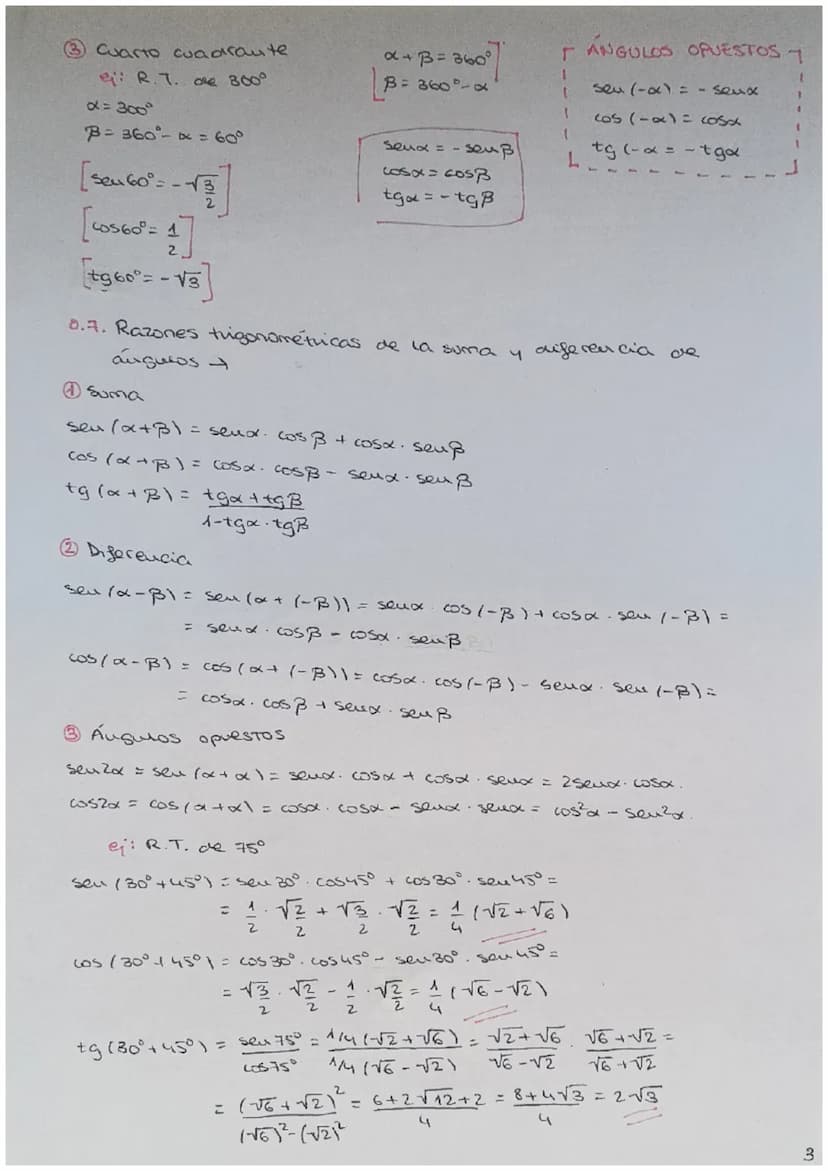 ③ Cuarto cuadrante
ej: R.T. de 300º
α = 300º
β = 360º - α = 60º
[sen 60º = -√3/2]
[cos 60º = 1/2]
[tg 60º = -√3]
α + β = 360º
β = 360º - α
sen α = - sen β
cos α = cos β
tg α = - tg β
ÁNGULOS OPUESTOS
sen (-α) = - sen α
cos (-α) = cos α
tg (-α = - tg α
0.7. Razones trigonométricas de la suma y diferencia de
ángulos →
① Suma
sen (α+β) = sen α · cos β + cos α · sen β
cos (α+β) = cos α · cos β - sen α · sen β
tg (α+β) = (tg α + tg β)/(1 - tg α · tg β)
② Diferencia
sen (α-β) = sen (α + (-β)) = sen α · cos (-β) + cos α · sen (-β) =
= sen α · cos β - cos α · sen β
cos (α-β) = cos (α + (-β)) = cos α · cos (-β) - sen α · sen (-β) =
= cos α · cos β + sen α · sen β
③ Ángulos opuestos
sen 2α = sen (α+α) = sen α · cos α + cos α · sen α = 2 sen α · cos α.
cos 2α = cos (α+α) = cos α · cos α - sen α · sen α = cos²α - sen²α.
ej: R.T. de 75º
sen (30º+45º) = sen 30º · cos 45º + cos 30º · sen 45º =
= 1/2 · √2/2 + √3/2 · √2/2 = 1/4 (√2 + √6)
cos (30º+45º) = cos 30º · cos 45º - sen 30º · sen 45º =
= √3/2 · √2/2 - 1/2 · √2/2 = 1/4 (√6 - √2)
tg (30º+45º) = sen 75º/cos 75º = 1/4 (√2 + √6)/1/4 (√6 - √2) = (√2 + √6)/(√6 - √2) · (√6 + √2)/(√6 + √2) =
= (√6 + √2)²/(√6)² - (√2)² = (6 + 2√12 + 2)/4 = (8 + 4√3)/4 = 2√3
3